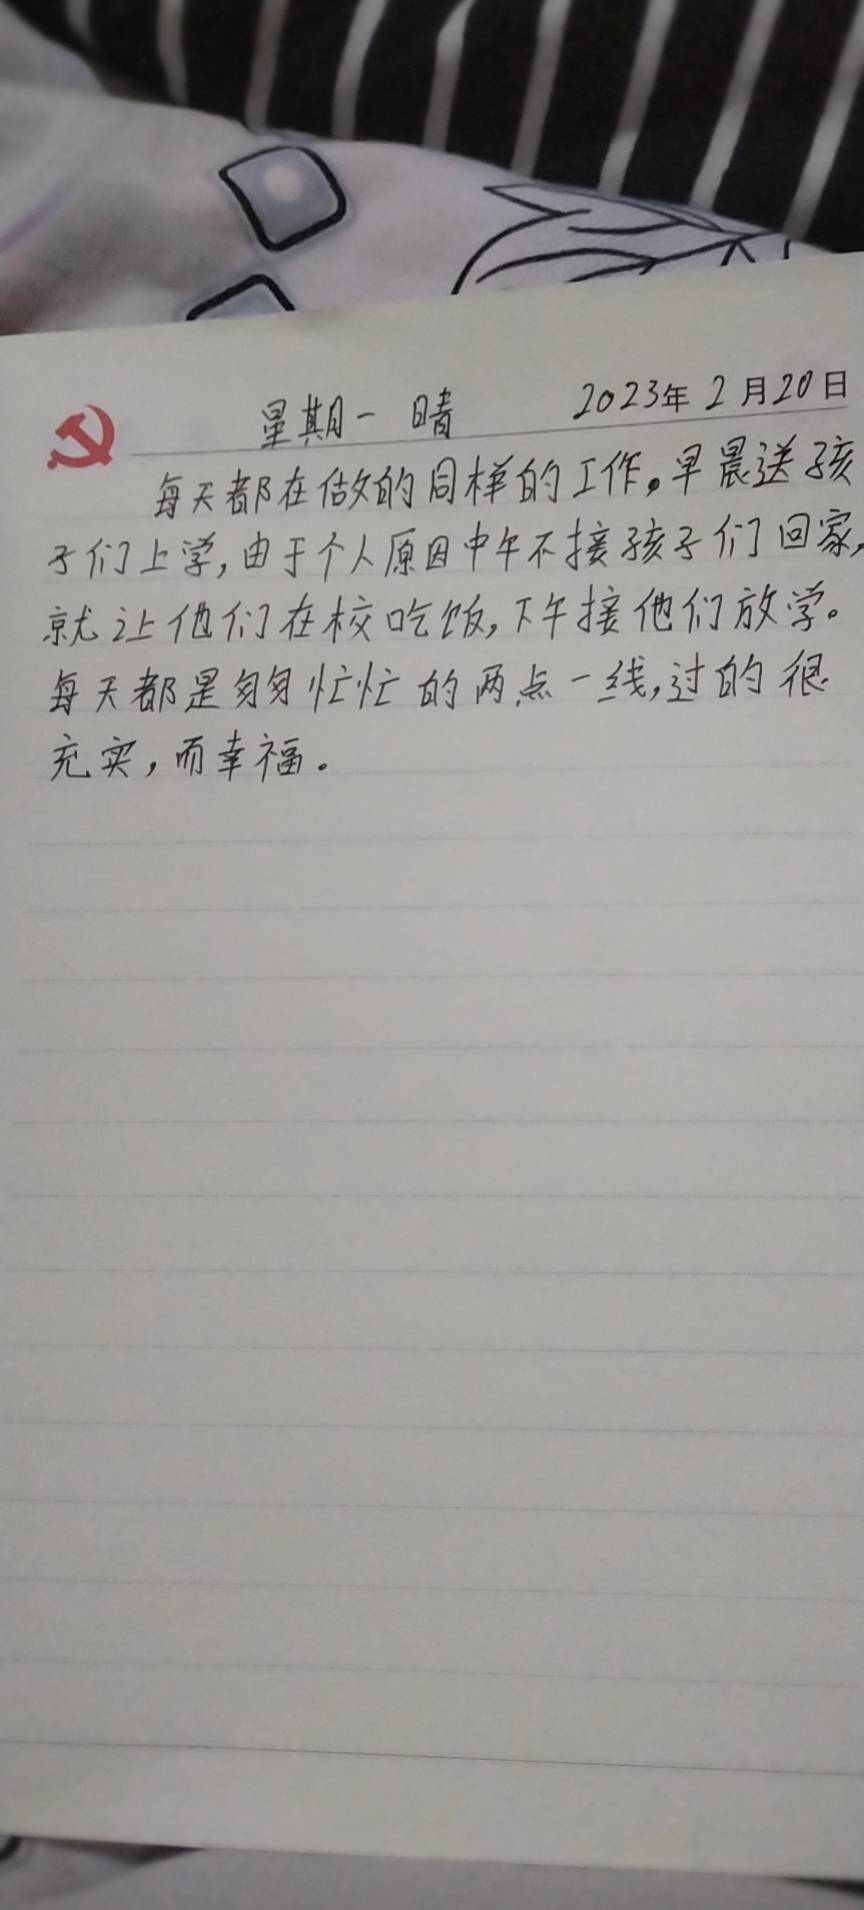 星期一 晴 2023年2月20日
每天都在做的同样的工作。早晨送孩
子们上学,由于个人原因中午不接孩子们回家,
就让他们在校吃饭,下午接他们放学。
每天都是匆匆忙忙的两点一线,过的很
充实,而幸福。